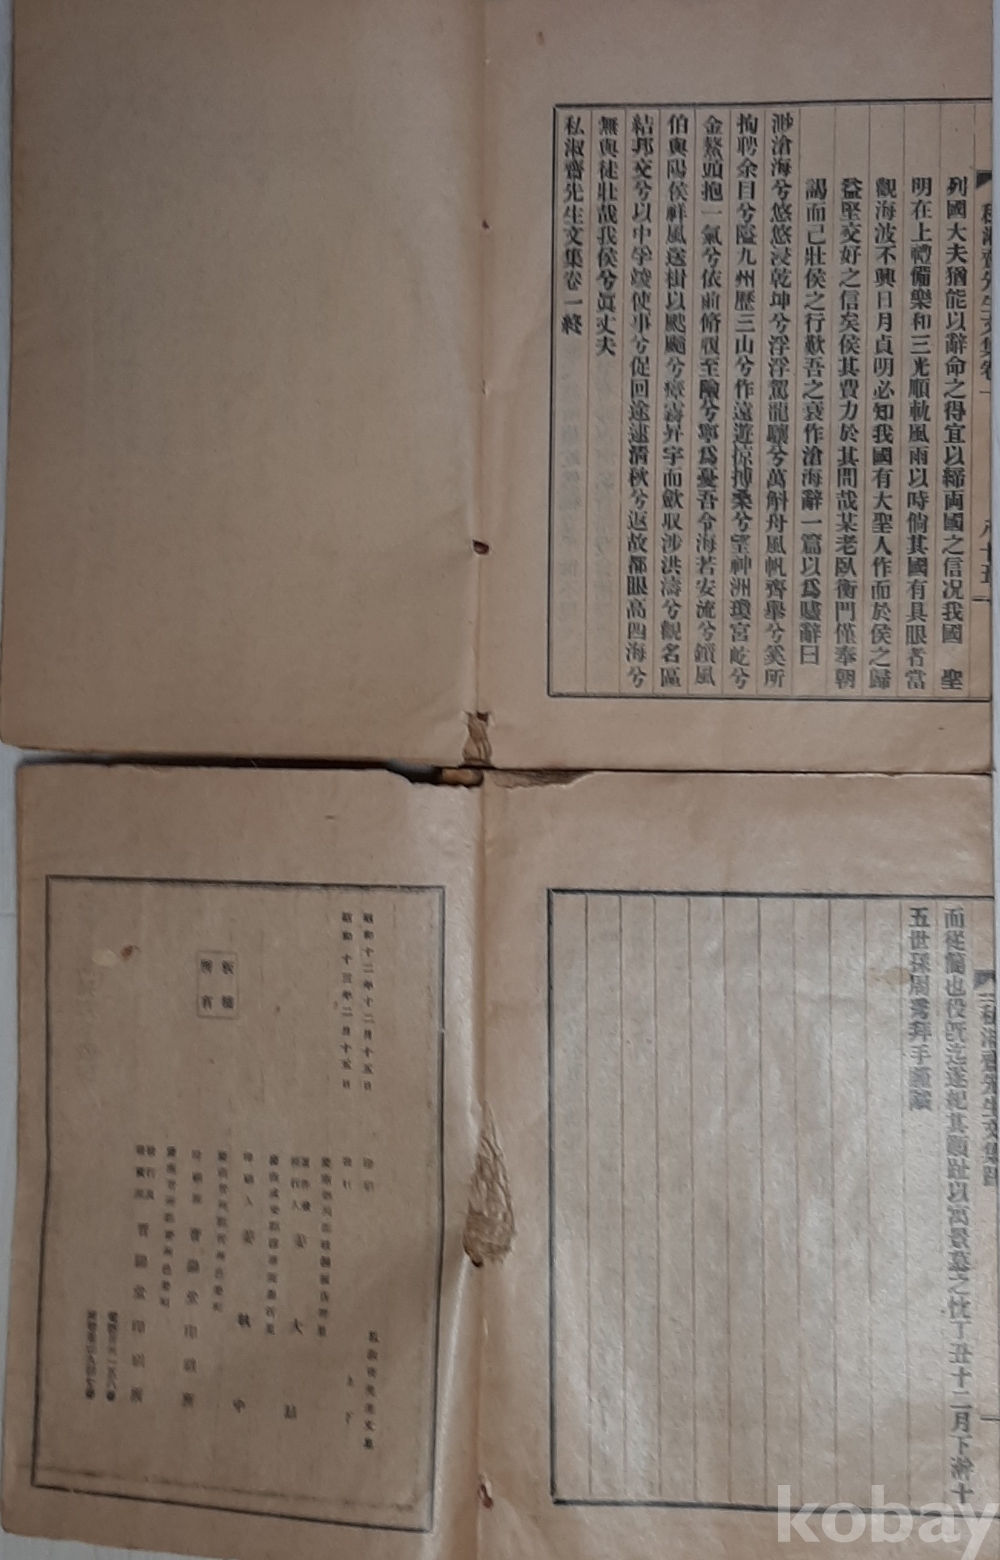 列國大夫猶能以辭命之得宜以締両國之信况我國 聖
明在上禮備樂和三光順軌風雨以時倘其國有具眼者當
觀海波不興日月貞明必知我國有大聖人作而於侯之歸
益堅交好之信矣侯其費力於其間哉某老臥衡門僅奉朝
謁而已壯侯之行歎吾之衰作滄海辭一篇以爲贐辭曰
滄海兮悠悠浸乾坤兮浮浮駕龍驤兮萬斛舟風帆齊擧兮奚所
拘聘余目兮隘九州歷三山兮作遠遊掠搏桑兮望神洲瓊宮屹兮
金鰲頭抱一氣兮依前脩履至險兮寧爲憂吾令海若安流兮鎖風
伯與陽侯祥風送楫以颼飀兮瘴霧昇宇而歛収涉洪濤兮觀名區
結邦交兮以中孚竣使事兮促回途逮淸秋兮返故都眼高四海兮
無與徒壯哉我侯兮眞丈夫
私淑齋先生文集卷一終
私淑齋先生文集卷一
八十五
而從簡也役旣迄遂紀其顚趾以寓景慕之忱丁丑十二月下澣十
五世孫周秀拜手謹識
私淑齋先生文集跋
一
昭和十二年十二月十五日
昭和十三年二月十五日 發行
私淑齋先生文集 上下
發行人 姜大
印刷人 姜
印刷所 晋陽堂印刷所
晋陽堂印刷所
版權
所有
kobay